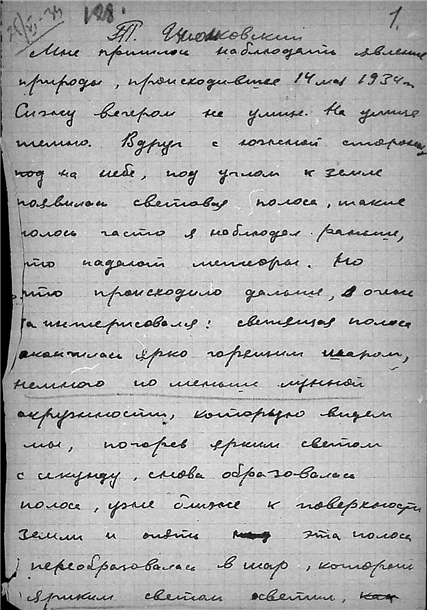 28/V-34 128. 1.
Т. Циолковский
Мне пришлось наблюдать явление
природы, происходившее 14 мая 1934 г.
Сижу вечером не улице. На улице
темно. Вдруг с южной стороны
под на небе, под углом к земле
появилась световая полоса, такие
полось часто я наблюдал раньше,
что падают метеоры. Но
что происходило дальше, я очень
заинтерисовался: светящая полоса
окончилась ярко горящим шаром,
немного по меньше лунной
окружности, которую видем
мы, погорев ярким светом
с секунду, снова образовалась
полоса, уже ближе к поверхности
земли и опять эта полоса
переобразовалась в шар, который
ярким светом осветил,